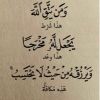 وَمَن يَتَّقِ اللَّهَ
هذا شرط
يَجْعَل لَّهُ مَخْرَجًا
هذا وعد
وَيَرْزُقْهُ مِنْ حَيْثُ لَا يَحْتَسِبُ
هذه مكافأة